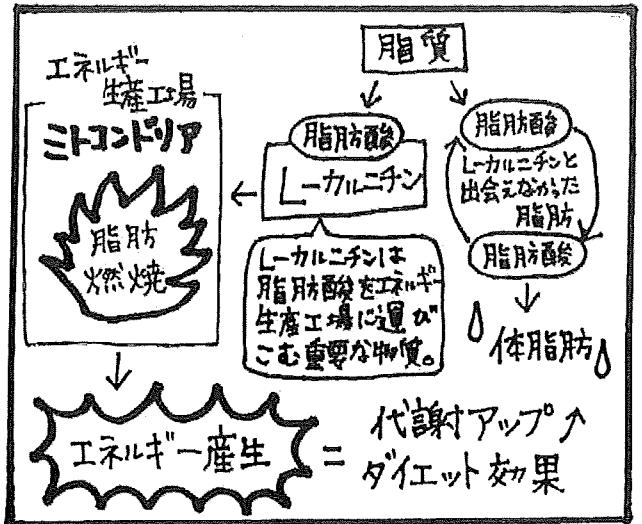 脂質
エネルギー
生産工場
ミトコンドリア
脂肪
燃焼
脂肪酸
L-カルニチン
L-カルニチンは
脂肪酸をエネルギー
生産工場に運び
こむ重要な物質。
脂肪酸
L-カルニチンと
出会えなかった
脂肪
脂肪酸
体脂肪
エネルギー産生
=
代謝アップ↑
ダイエット効果